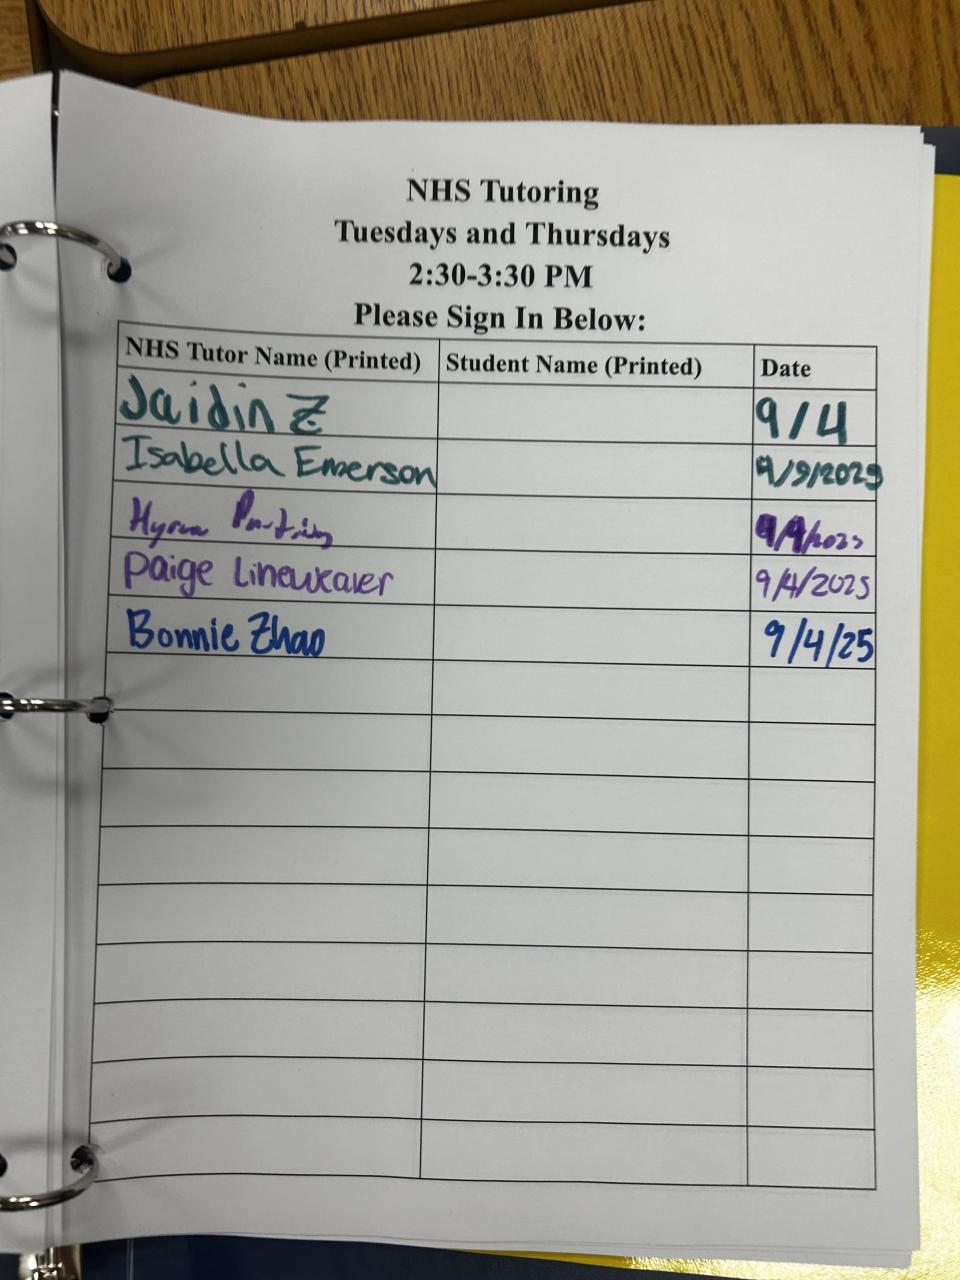 NHS Tutoring
Tuesdays and Thursdays
2:30-3:30 PM
Please Sign In Below:
NHS Tutor Name (Printed) Student Name (Printed) Date
Jaidin Z 9/4
Isabella Emerson
Paige Lineweaver 9/4/2025
Bonnie Zhao 9/4/25